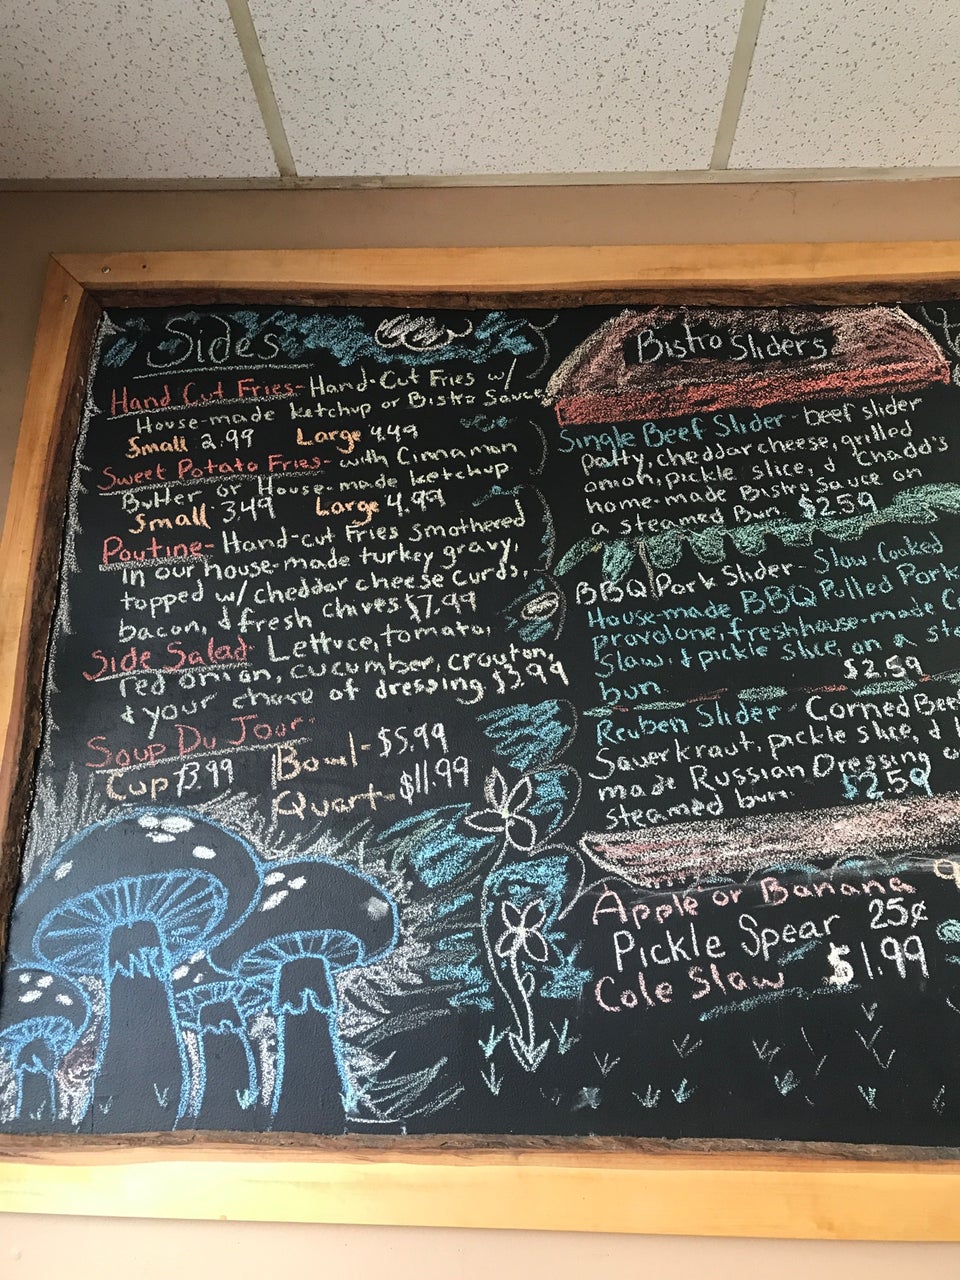 Sides
Hand Cut Fries- Hand-Cut Fries w/
House-made ketchup or Bistro Sauce
Small 2.99 Large 4.49
Sweet Potato Fries- with Cinnamon
Butter or House-made ketchup
Small 3.49 Large 4.99
Poutine- Hand-cut Fries smothered
in our house-made turkey gravy,
topped w/cheddar cheese curds,
bacon, & fresh chives $7.99
Side Salad- Lettuce, tomato,
red onion, cucumber, crouton,
& your choice of dressing $3.99
Soup Du Jour-
Cup $3.99 Bowl- $5.99
Quart- $11.99
Bistro Sliders
Single Beef Slider- beef slider
patty, cheddar cheese, grilled
onion, pickle slice, & Chadd's
home-made Bistro Sauce on
a steamed Bun. $2.59
BBQ Pork Slider- Slow Cooked
House-made BBQ Pulled Pork
provolone, fresh house-made
slaw, & pickle slice, on a
bun. $2.59
Reuben Slider- Corned
Sauerkraut, pickle slice, &
made Russian Dressing
steamed bun. $2.59
Apple or Banana
Pickle Spear 25¢
Cole Slaw $1.99